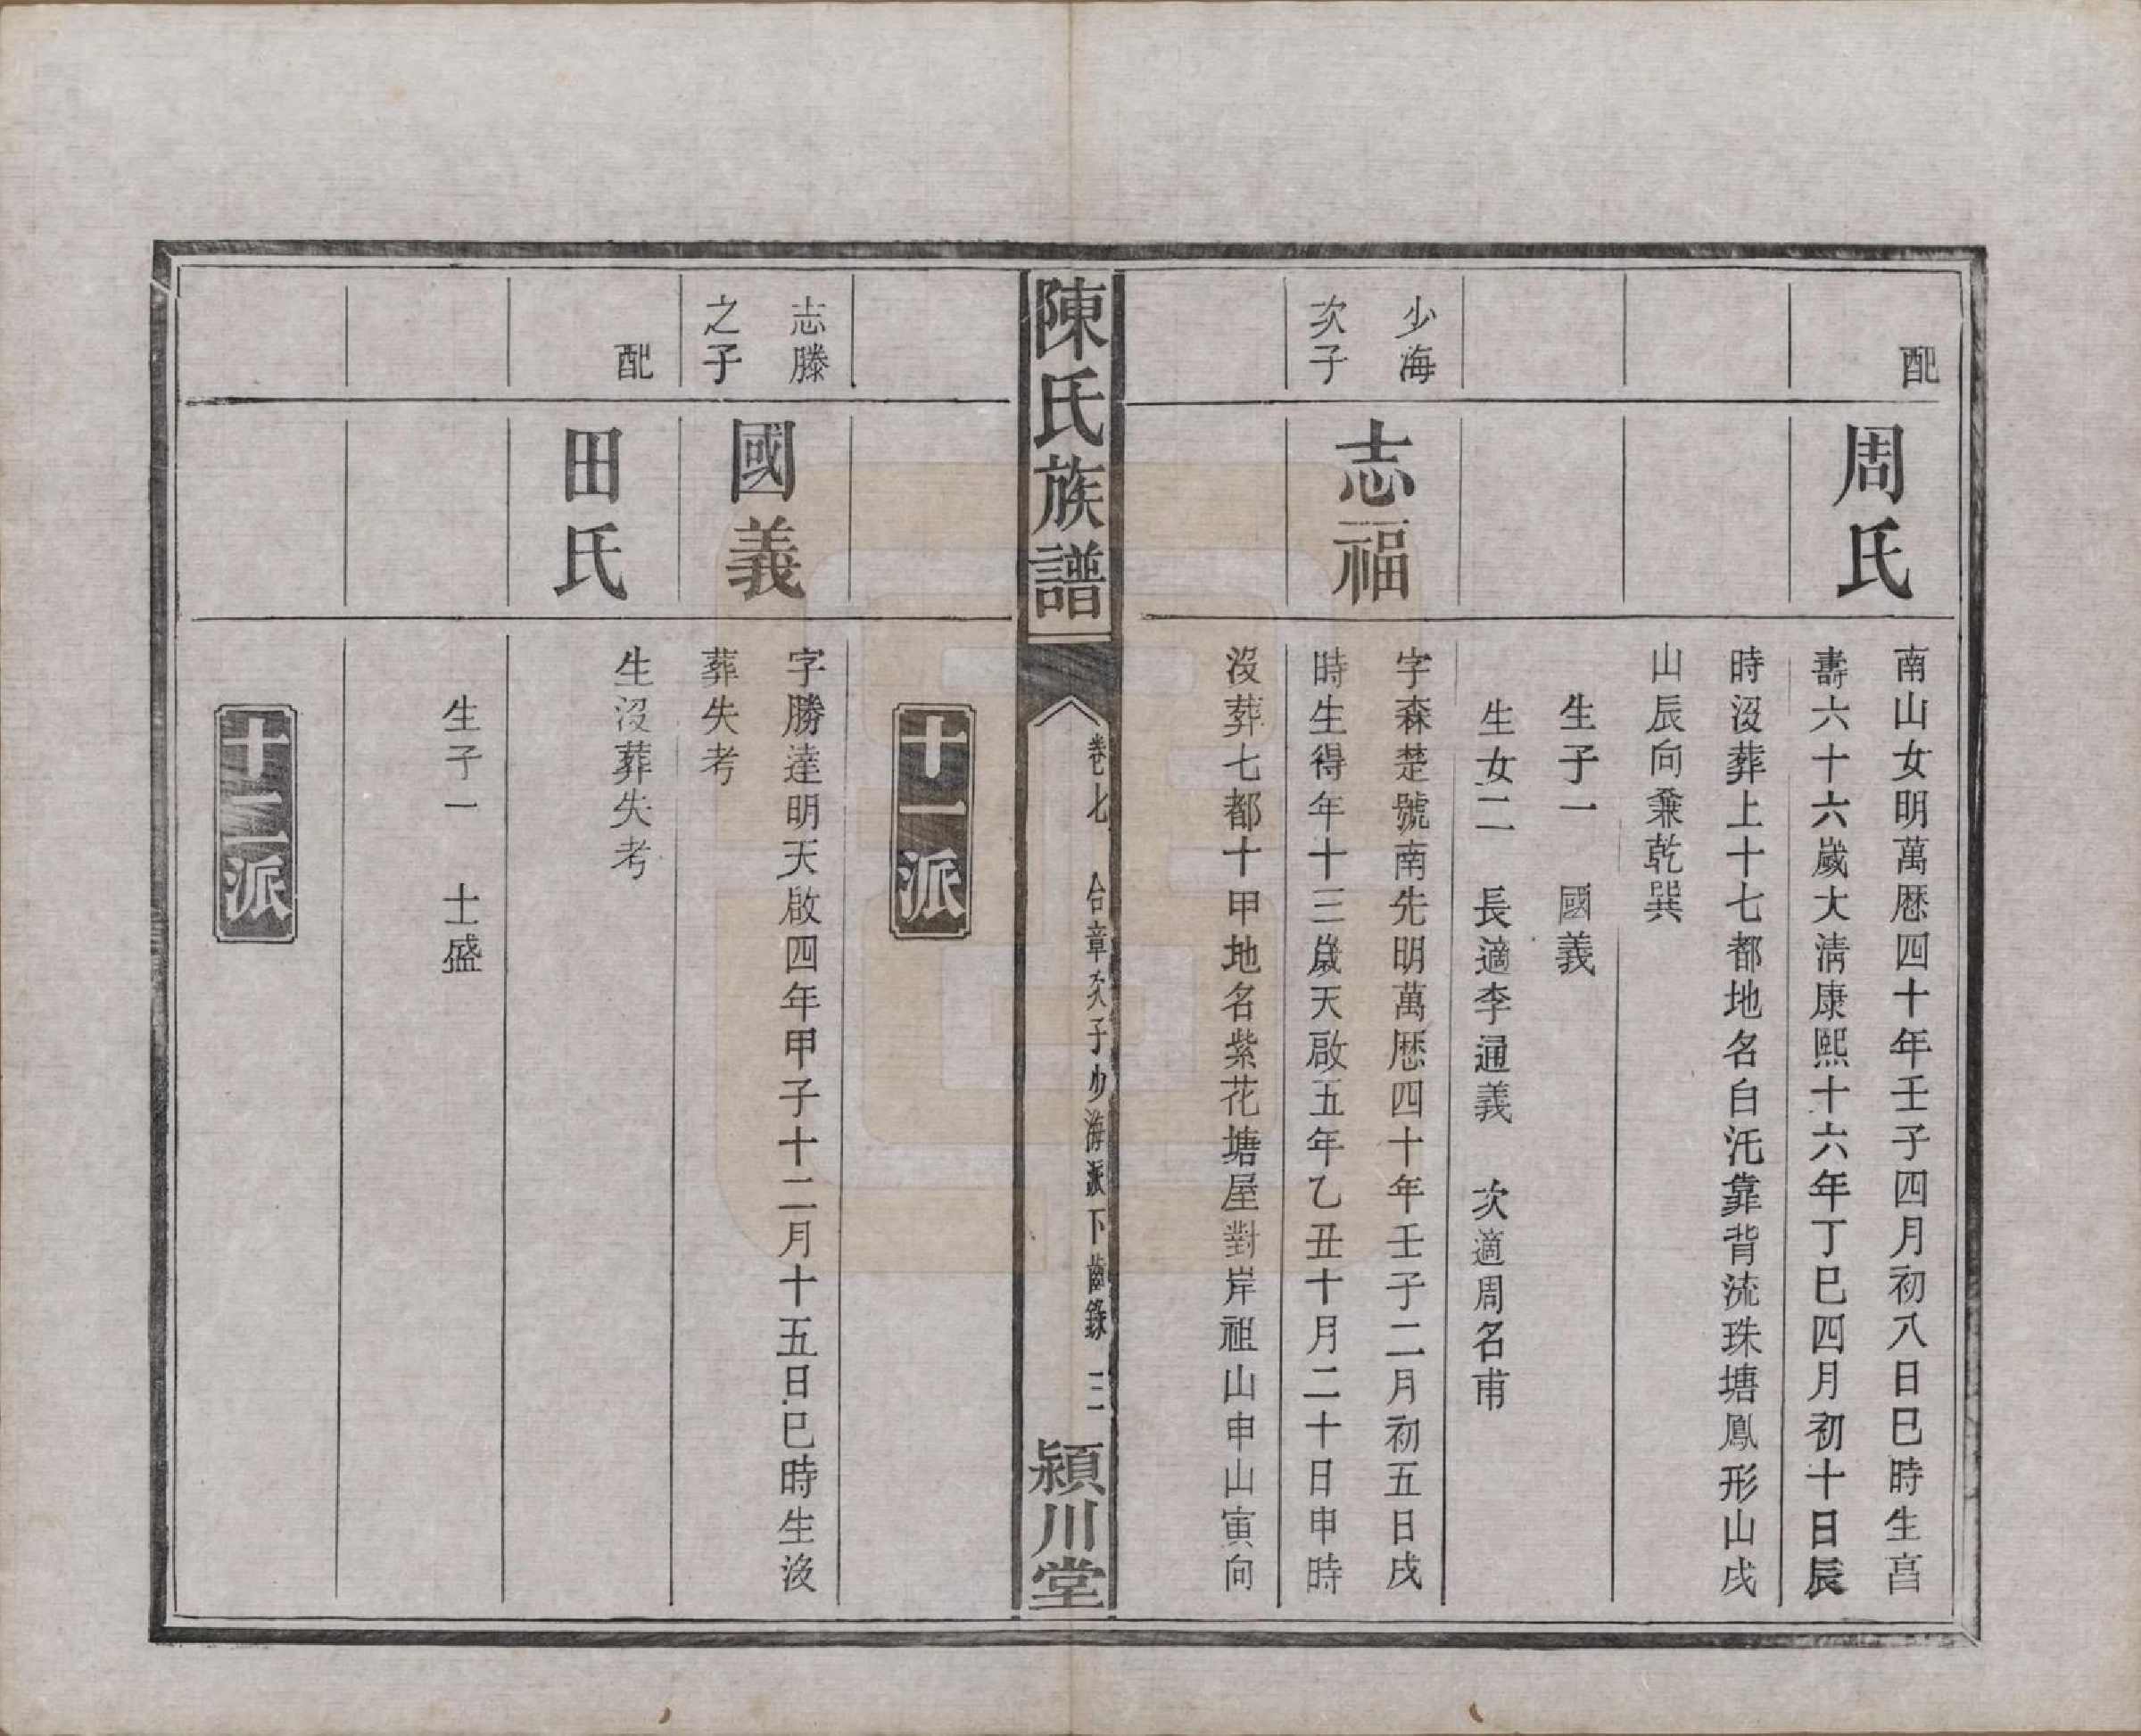 配
周氏
南山女明萬厯四十年壬子四月初八日巳時生亯
壽六十六歲大淸康熙十六年丁巳四月初十日辰
時沒葬上十七都地名白汑靠背流珠塘鳳形山戌
山辰向兼乾巽
生子一 國義
生女二 長適李通義 次適周名甫
少海
次子
志福
字森楚號南先明萬厯四十年壬子二月初五日戌
時生得年十三歲天啟五年乙丑十月二十日申時
沒葬七都十甲地名紫花塘屋對岸祖山申山寅向
陳氏族譜
卷七 台章次子少海派下齒錄 三
潁川堂
十一派
志滕
之子
國義
字勝達明天啟四年甲子十二月十五日巳時生沒
葬失考
配
田氏
生沒葬失考
生子一 士盛
十二派